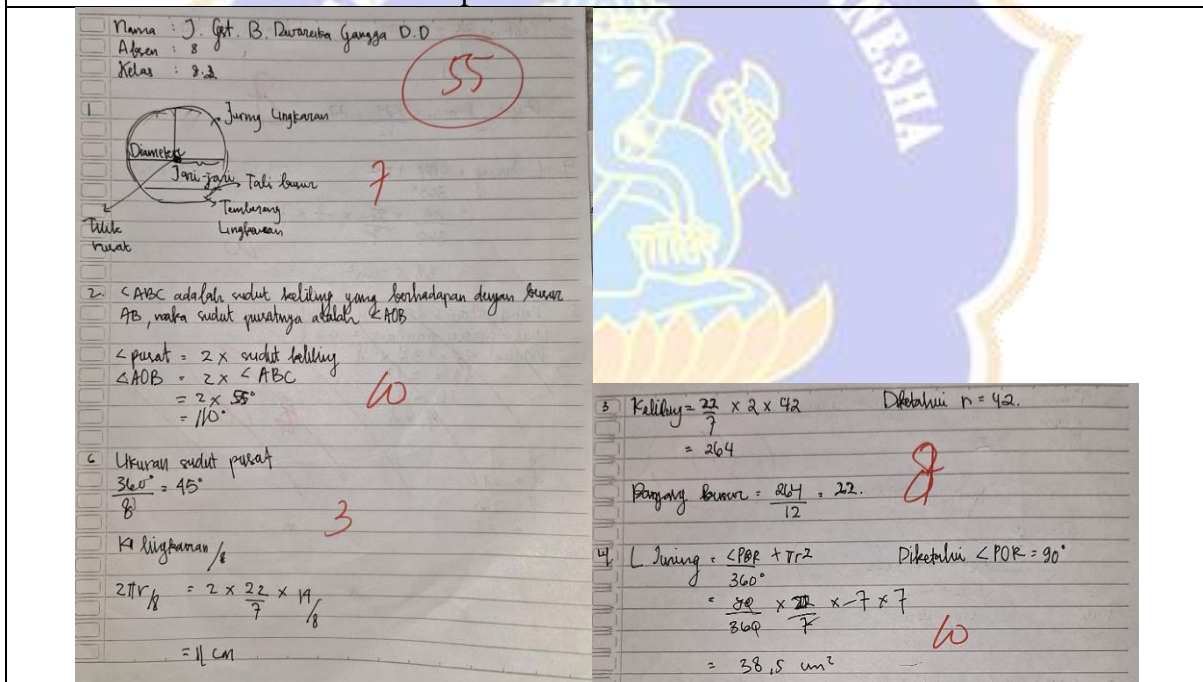 Nama : J. Gst. B. Dwarcika Gangga D.D
Absen : 8
Kelas : 8.2
55
1
Juring Lingkaran
Diameter
Jari-jari
Tali busur
Tembereng
Lingkaran
Titik
pusat
7
2. <ABC adalah sudut keliling yang berhadapan dengan busur
AB, maka sudut pusatnya adalah <AOB
<pusat = 2 x sudut keliling
<AOB = 2 x <ABC
= 2 x 55°
= 110°
10
6 Ukuran sudut pusat
360°/8 = 45°
3
K lingkaran/8
2πr/8 = 2 x 22/7 x 14/8
= 11 cm
3 Keliling = 22/7 x 2 x 42 Diketahui r = 42.
= 264
8
Panjang busur = 264/12 = 22.
4. L Juring = <POR/360° + πr2 Diketahui <POR = 90°
= 90/360 x 22/7 x -7 x 7
10
= 38,5 cm²
NESHA